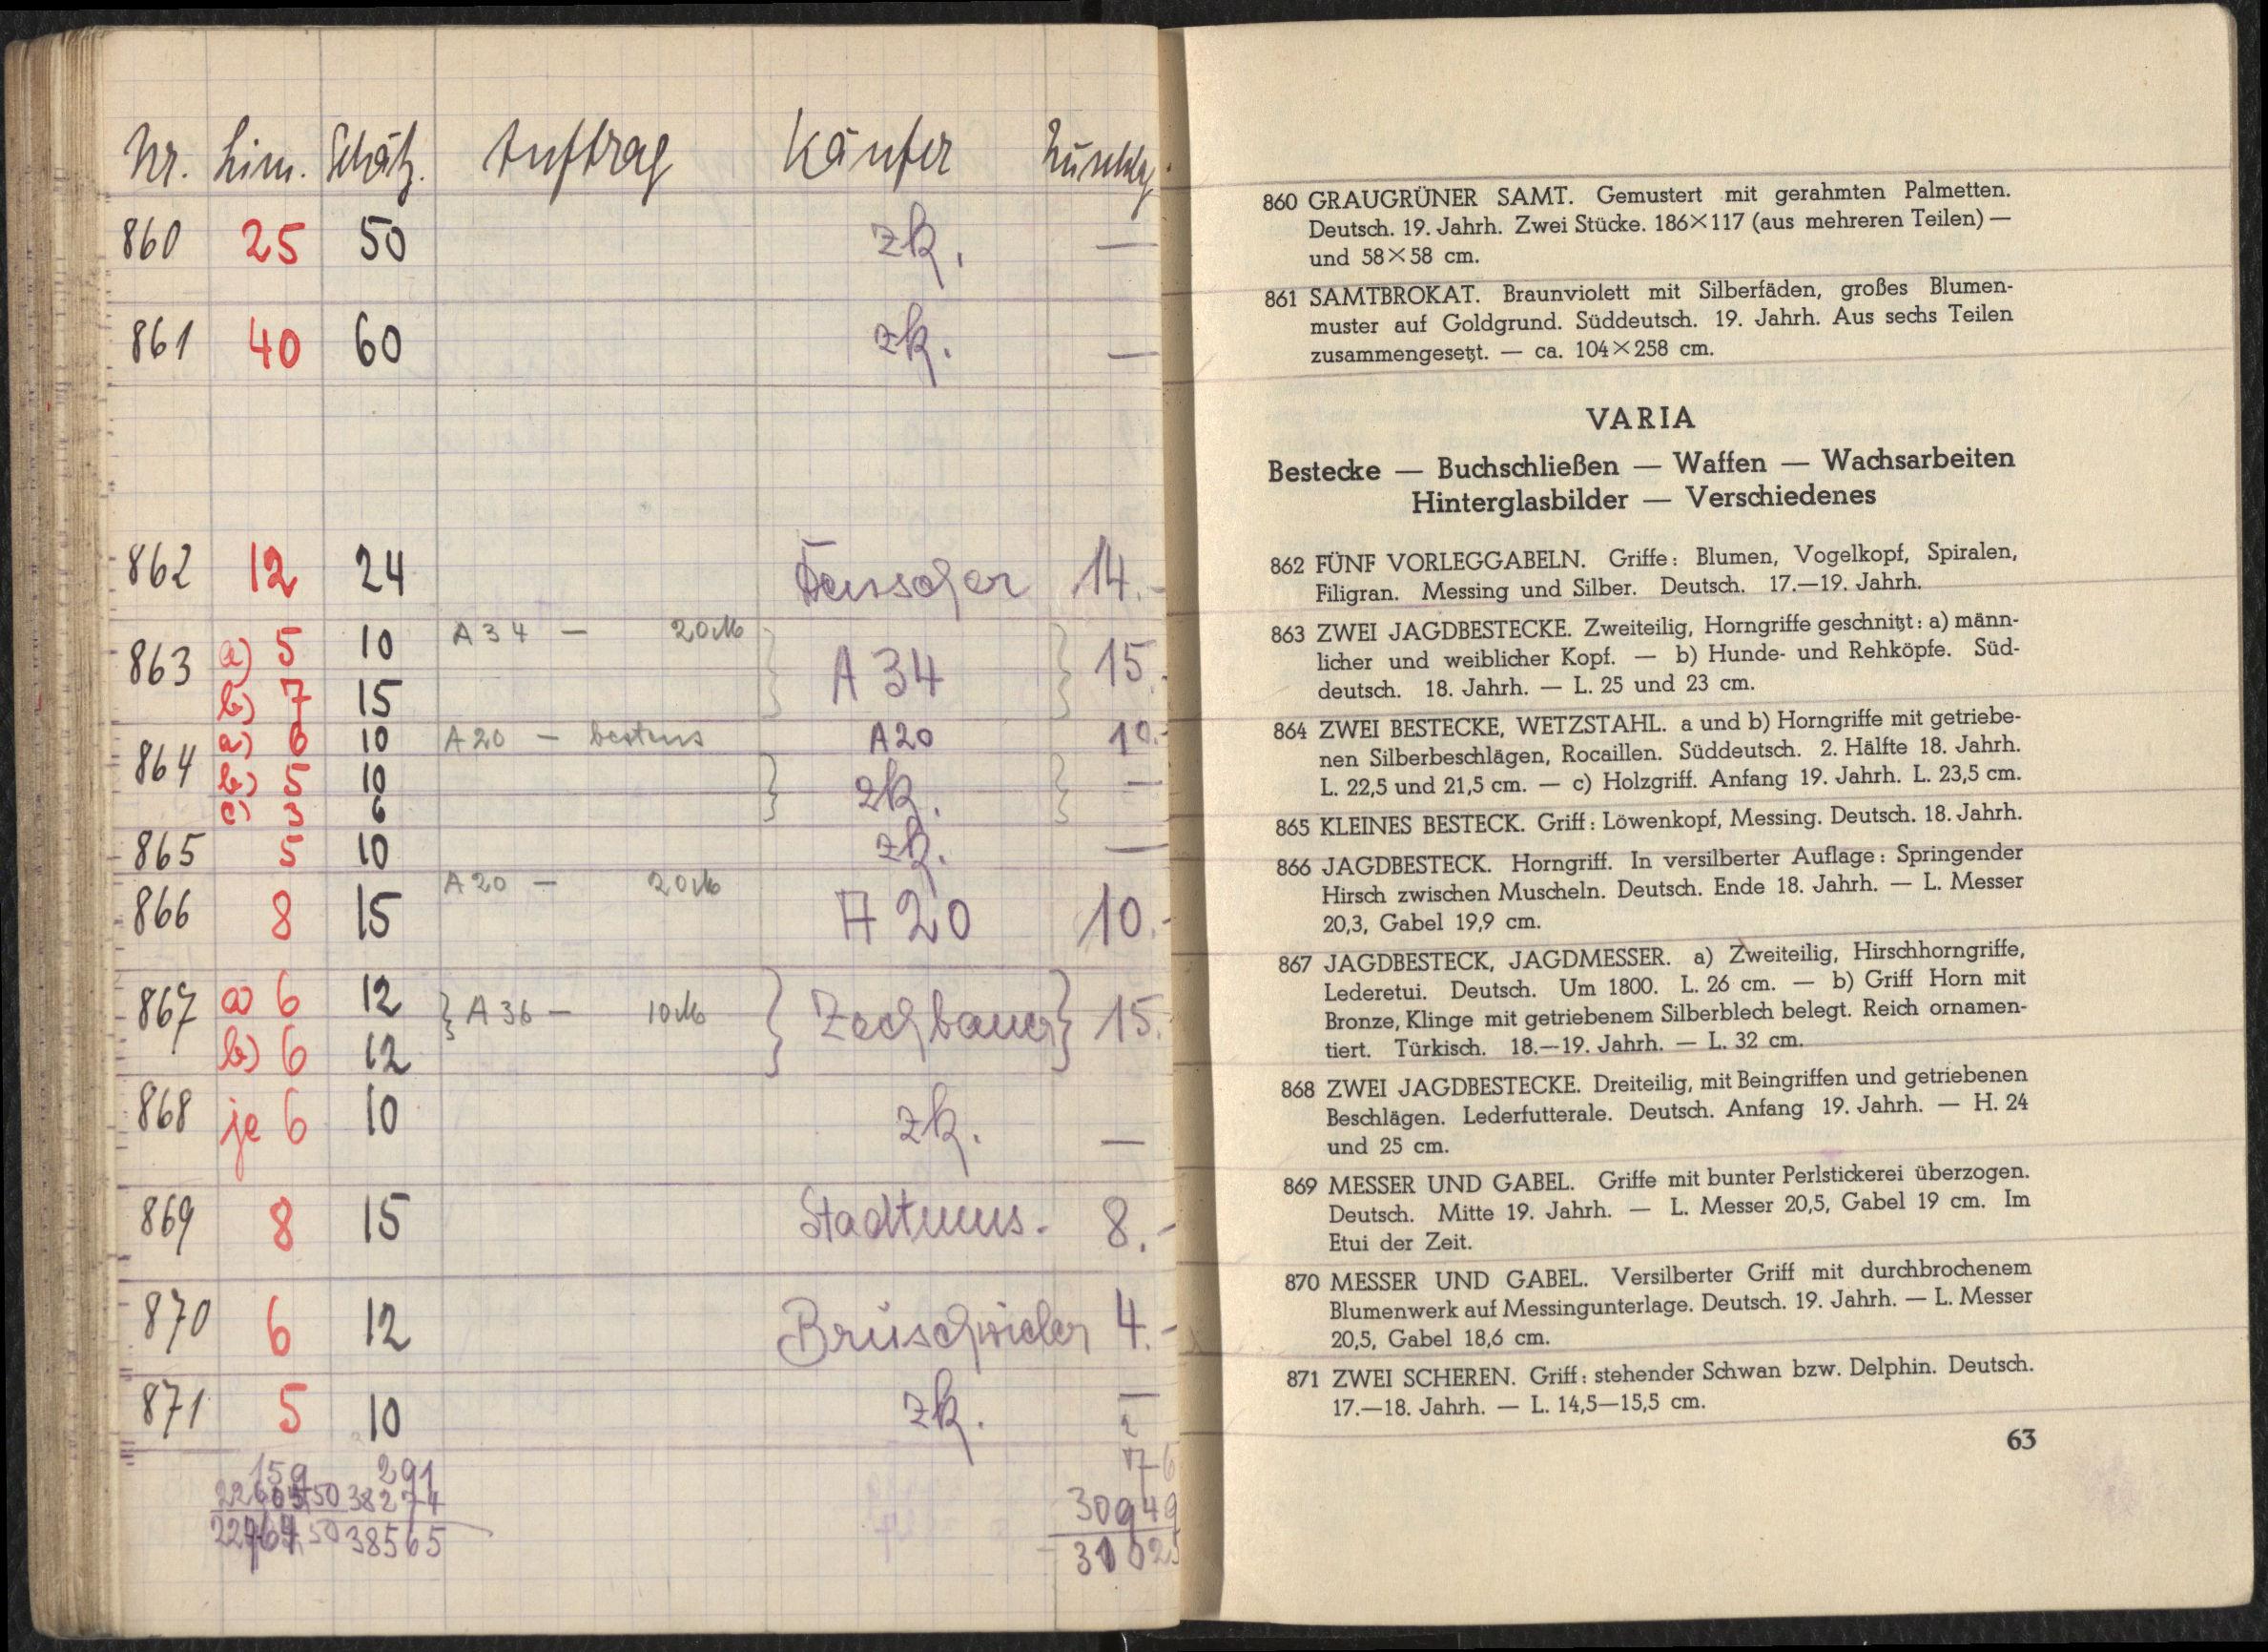 Nr. Lim. Schätz. Auftrag Käufer Zuschlag
860 25 50 zk. —
861 40 60 zk. —
862 12 24 14.-
863 a) 5 10 A 34 — 20 M } A 34 } 15.-
b) 7 15
864 a) 6 10 A 20 — bestens A 20 10.-
b) 5 10 } zk. } —
c) 3 6
865 5 10 zk. —
866 8 15 A 20 — 20 M A 20 10.-
867 a) 6 12 } A 36 — 10 M } Zechbauer } 15.
b) 6 12
868 je 6 10 zk. —
869 8 15 Stadtmus. 8.-
870 6 12 Brüschwiler 4.-
871 5 10 zk. —
159 291 76
38274 30949
50 38565 31025
860 GRAUGRÜNER SAMT. Gemustert mit gerahmten Palmetten.
Deutsch. 19. Jahrh. Zwei Stücke. 186×117 (aus mehreren Teilen) —
und 58×58 cm.
861 SAMTBROKAT. Braunviolett mit Silberfäden, großes Blumen-
muster auf Goldgrund. Süddeutsch. 19. Jahrh. Aus sechs Teilen
zusammengesetzt. — ca. 104×258 cm.
VARIA
Bestecke — Buchschließen — Waffen — Wachsarbeiten
Hinterglasbilder — Verschiedenes
862 FÜNF VORLEGGABELN. Griffe: Blumen, Vogelkopf, Spiralen,
Filigran. Messing und Silber. Deutsch. 17.—19. Jahrh.
863 ZWEI JAGDBESTECKE. Zweiteilig, Horngriffe geschnitzt: a) männ-
licher und weiblicher Kopf. — b) Hunde- und Rehköpfe. Süd-
deutsch. 18. Jahrh. — L. 25 und 23 cm.
864 ZWEI BESTECKE, WETZSTAHL. a und b) Horngriffe mit getriebe-
nen Silberbeschlägen, Rocaillen. Süddeutsch. 2. Hälfte 18. Jahrh.
L. 22,5 und 21,5 cm. — c) Holzgriff. Anfang 19. Jahrh. L. 23,5 cm.
865 KLEINES BESTECK. Griff: Löwenkopf, Messing. Deutsch. 18. Jahrh.
866 JAGDBESTECK. Horngriff. In versilberter Auflage: Springender
Hirsch zwischen Muscheln. Deutsch. Ende 18. Jahrh. — L. Messer
20,3, Gabel 19,9 cm.
867 JAGDBESTECK, JAGDMESSER. a) Zweiteilig, Hirschhorngriffe,
Lederetui. Deutsch. Um 1800. L. 26 cm. — b) Griff Horn mit
Bronze, Klinge mit getriebenem Silberblech belegt. Reich ornamen-
tiert. Türkisch. 18.—19. Jahrh. — L. 32 cm.
868 ZWEI JAGDBESTECKE. Dreiteilig, mit Beingriffen und getriebenen
Beschlägen. Lederfutterale. Deutsch. Anfang 19. Jahrh. — H. 24
und 25 cm.
869 MESSER UND GABEL. Griffe mit bunter Perlstickerei überzogen.
Deutsch. Mitte 19. Jahrh. — L. Messer 20,5, Gabel 19 cm. Im
Etui der Zeit.
870 MESSER UND GABEL. Versilberter Griff mit durchbrochenem
Blumenwerk auf Messingunterlage. Deutsch. 19. Jahrh. — L. Messer
20,5, Gabel 18,6 cm.
871 ZWEI SCHEREN. Griff: stehender Schwan bzw. Delphin. Deutsch.
17.—18. Jahrh. — L. 14,5—15,5 cm.
63